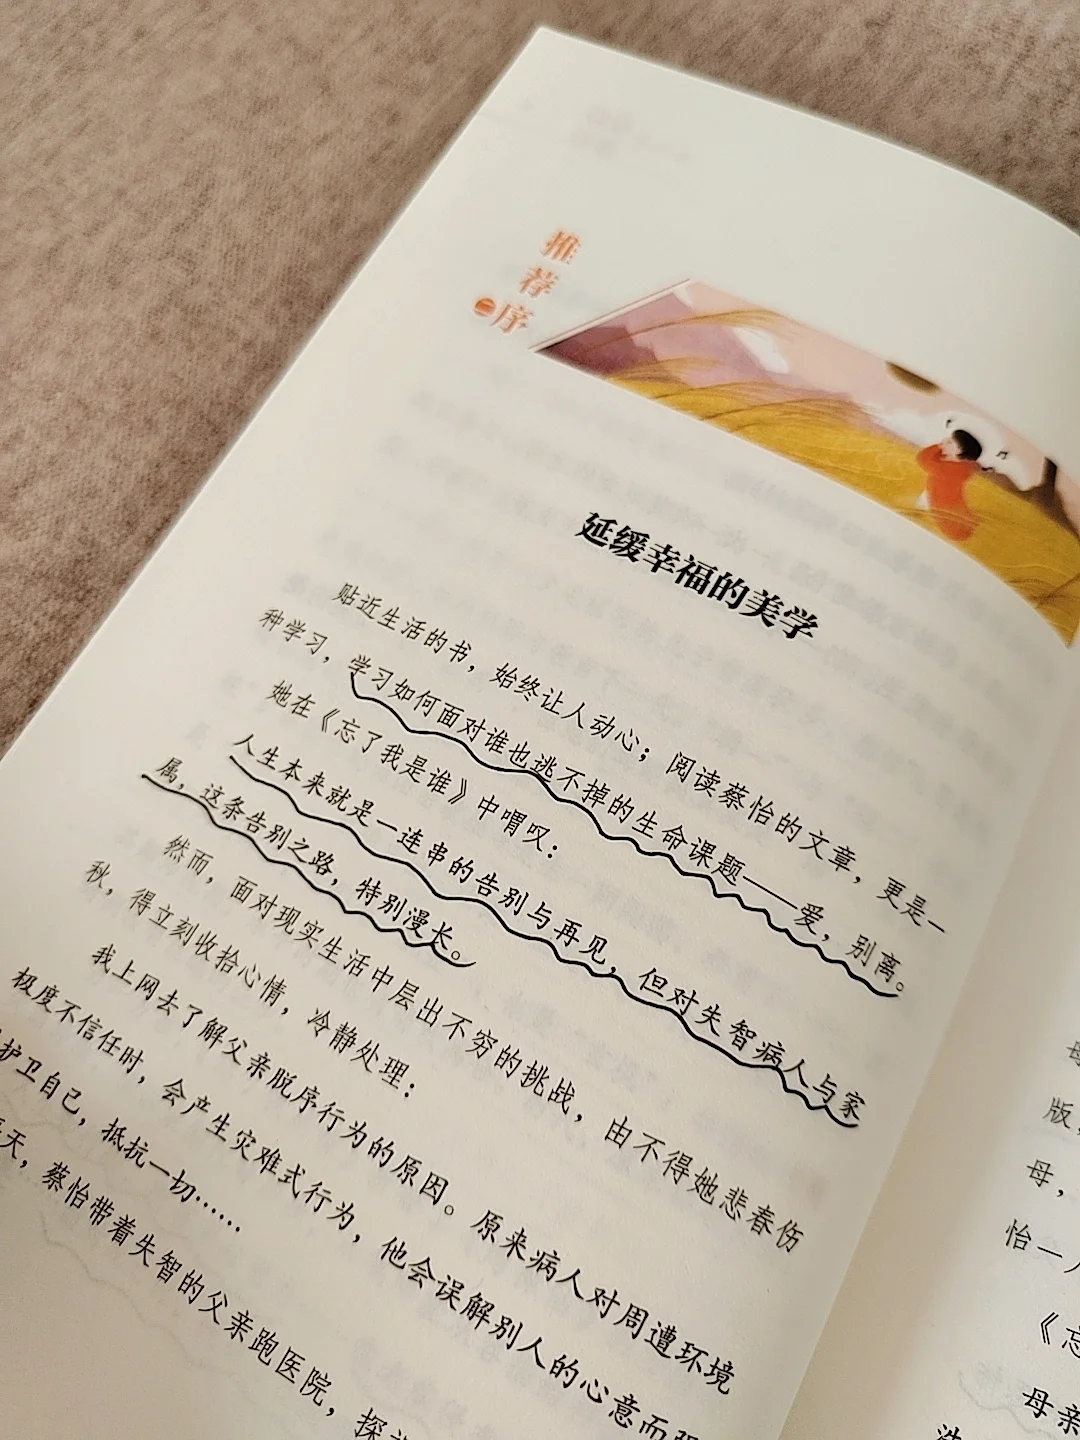 推荐序
二
延缓幸福的美学
贴近生活的书，始终让人动心；阅读蔡怡的文章，更是一
种学习，学习如何面对谁也逃不掉的生命课题——爱，别离。
她在《忘了我是谁》中喟叹：
人生本来就是一连串的告别与再见，但对失智病人与家
属，这条告别之路，特别漫长。
然而，面对现实生活中层出不穷的挑战，由不得她悲春伤
秋，得立刻收拾心情，冷静处理：
我上网去了解父亲脱序行为的原因。原来病人对周遭环境
极度不信任时，会产生灾难式行为，他会误解别人的心意而
护卫自己，抵抗一切……
天，蔡怡带着失智的父亲跑医院，探
版，
母，
怡一
《忘
母亲